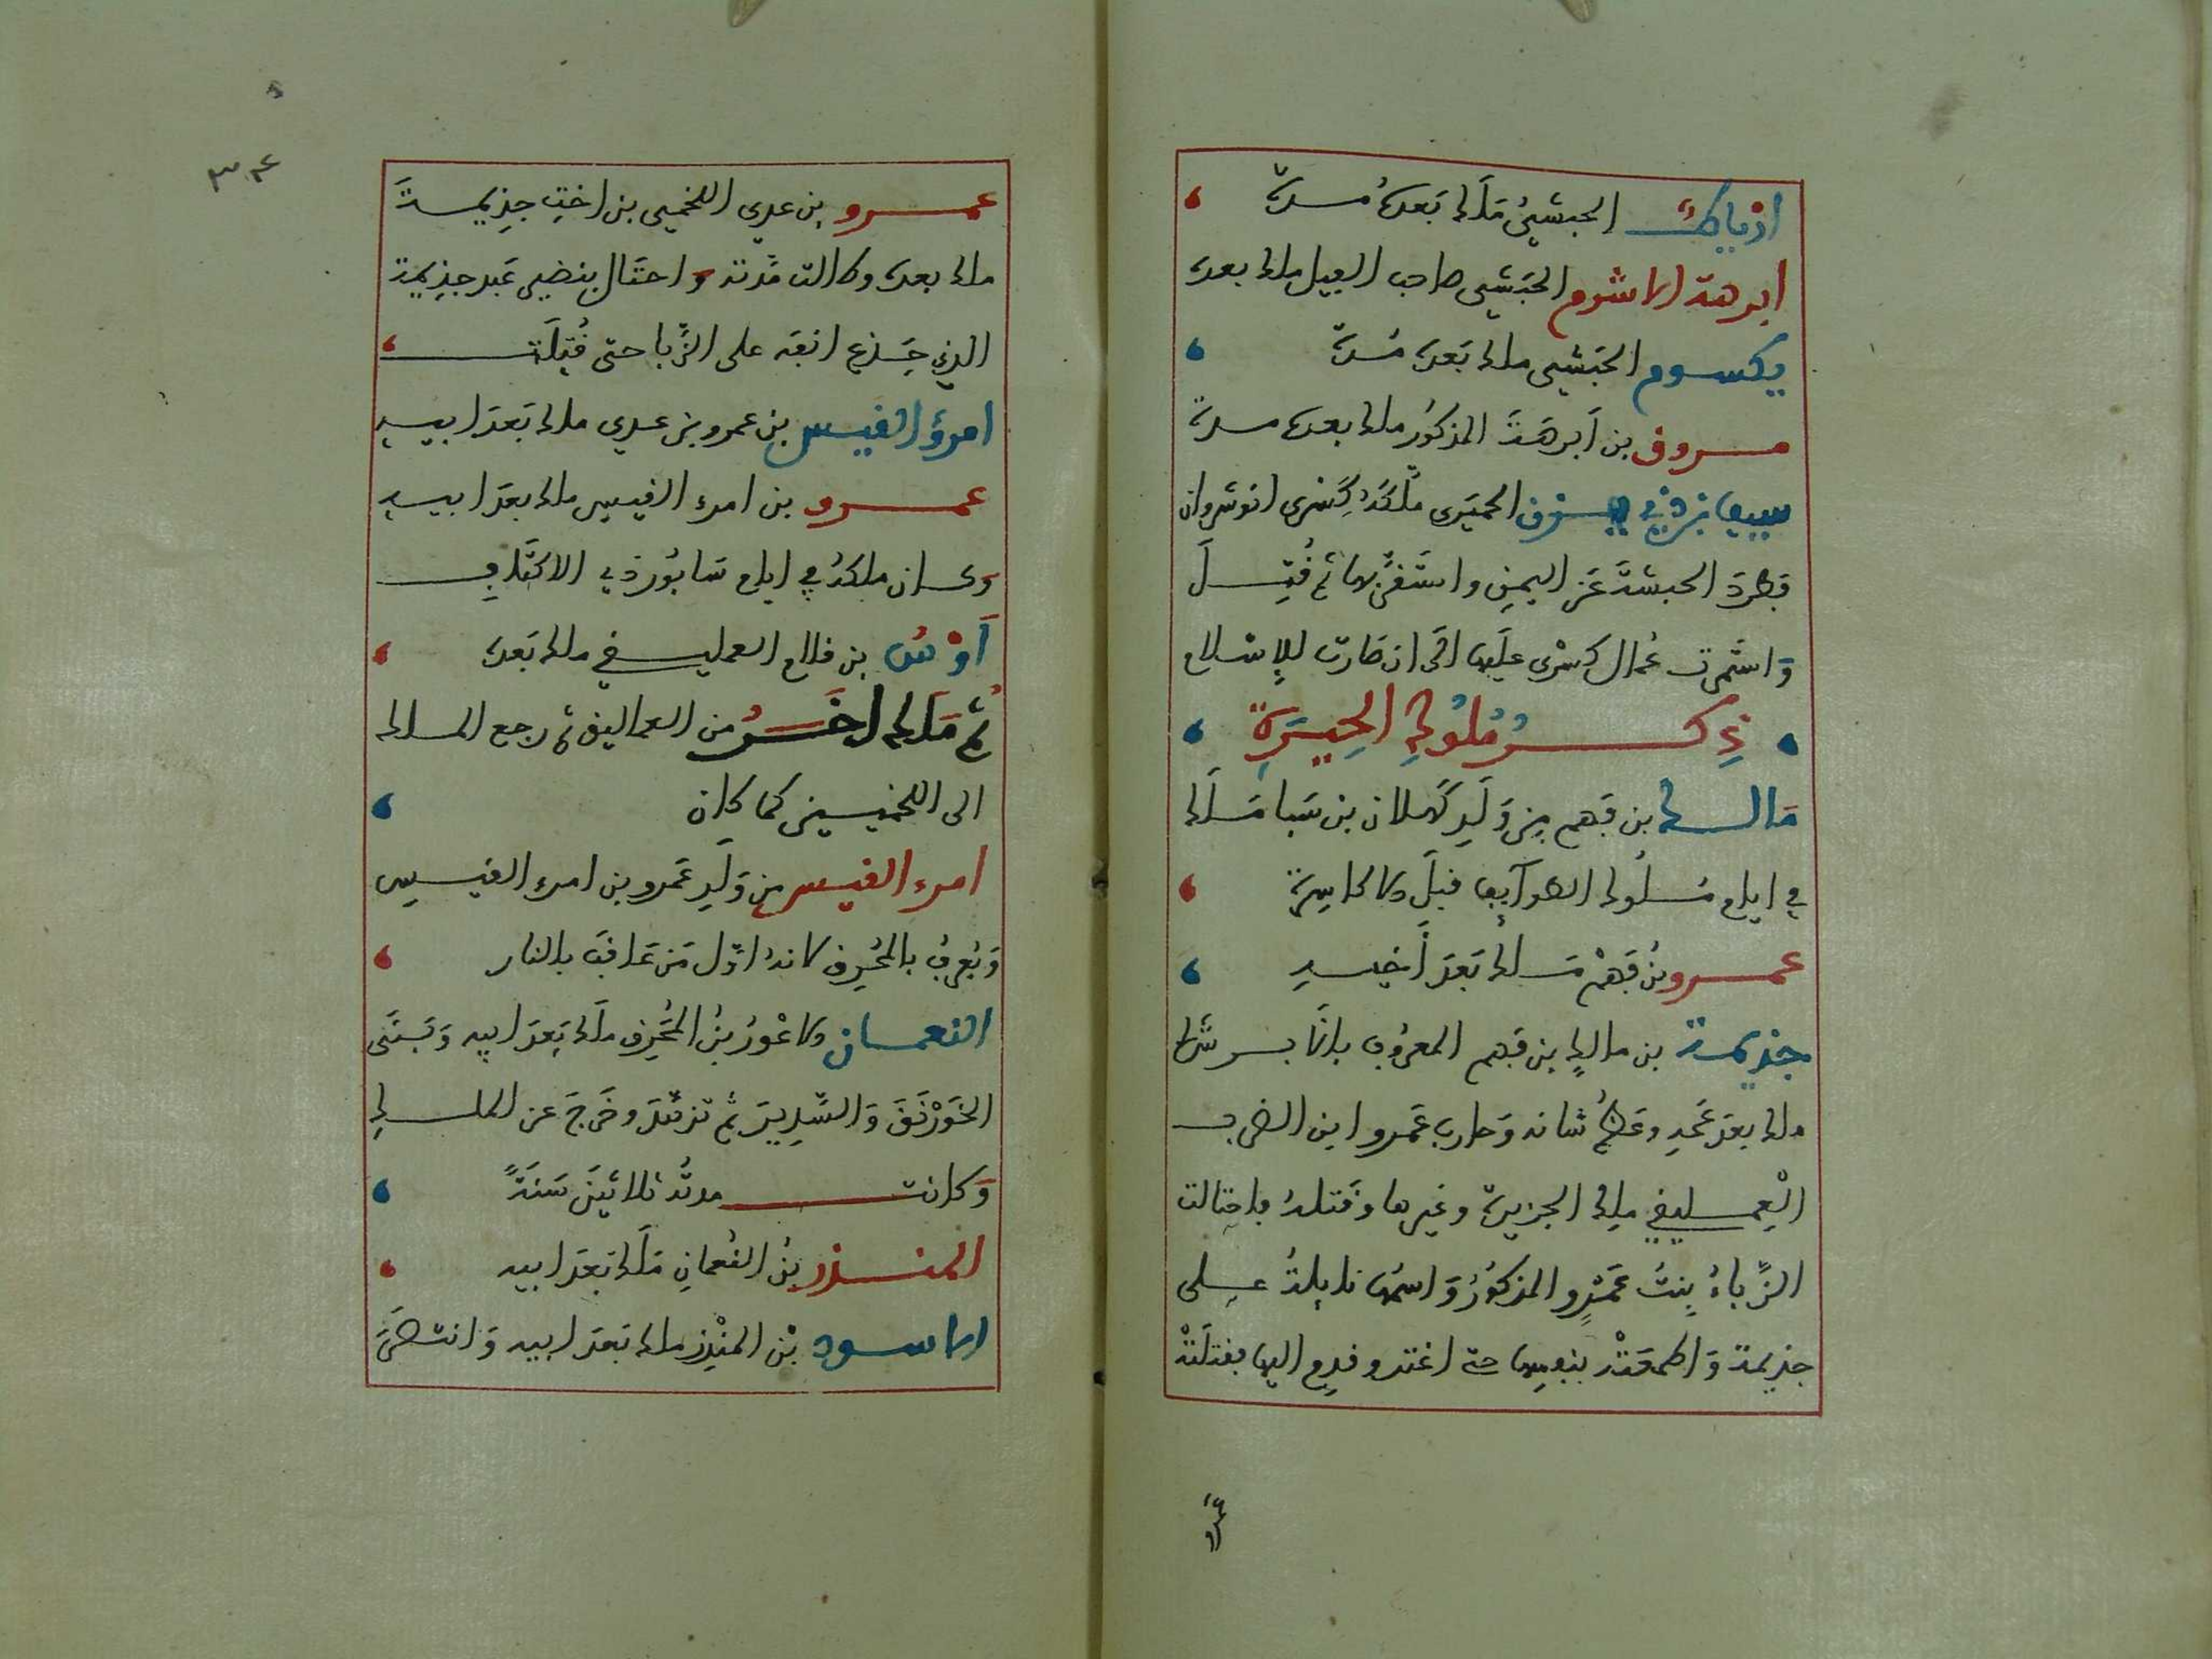 ارياط الحبشي ملك بعده مدة
ابرهة الاشرم الحبشي صاحب الفيل ملك بعده
يكسوم الحبشي ملك بعده مدة
مسروق بن أبرهة المذكور ملك بعده مدة
سيف بن ذي يزن الحميري ملكه كسرى انوشروان
فطرد الحبشة عن اليمن واستقر بها ثم قتل
واستمرت عمال كسرى عليها الى ان صارت للاسلام
ذكر ملوك الحيرة
مالك بن فهم من ولد كهلان بن سبا ملك
في ايام ملوك الطوائف قبل الاكاسرة
عمرو بن فهم ملك بعد أخيه
جذيمة بن مالك بن فهم المعروف بالابرش
ملك بعد عمه وعظم شانه وحارب عمرو ابن الضرب
العمليقي ملك الجزيرة وغيرها وقتله فاحتالت
الزباء بنت عمرو المذكور واسمها نايلة على
جذيمة واطمعته بنفسها حتى اغتر وقدم اليها فقتلته
عمرو
٣٤
عمرو بن عدي اللخمي بن اخت جذيمة
ملك بعده وطالت مدته واحتال بقصير عبد جذيمة
الذي جذع انفه على الزبا حتى قتلت
امرؤ القيس بن عمرو بن عدي ملك بعد ابيه
عمرو بن امرء القيس ملك بعد ابيه
وكان ملكه في ايام سابور ذي الاكتاف
أوس بن قلام العمليقي ملك بعده
ثم ملك اخر من العماليق ثم رجع الملك
الى اللخميين كما كان
امرء القيس من ولد عمرو بن امرء القيس
ويعرف بالمحرق لانه اول من عاقب بالنار
النعمان الاعور بن المحرق ملك بعد ابيه وبنى
الخورنق والسدير ثم تزهد وخرج عن الملك
وكانت مدته ثلاثين سنة
المنذر بن النعمان ملك بعد ابيه
الاسود بن المنذر ملك بعد ابيه وانتصر